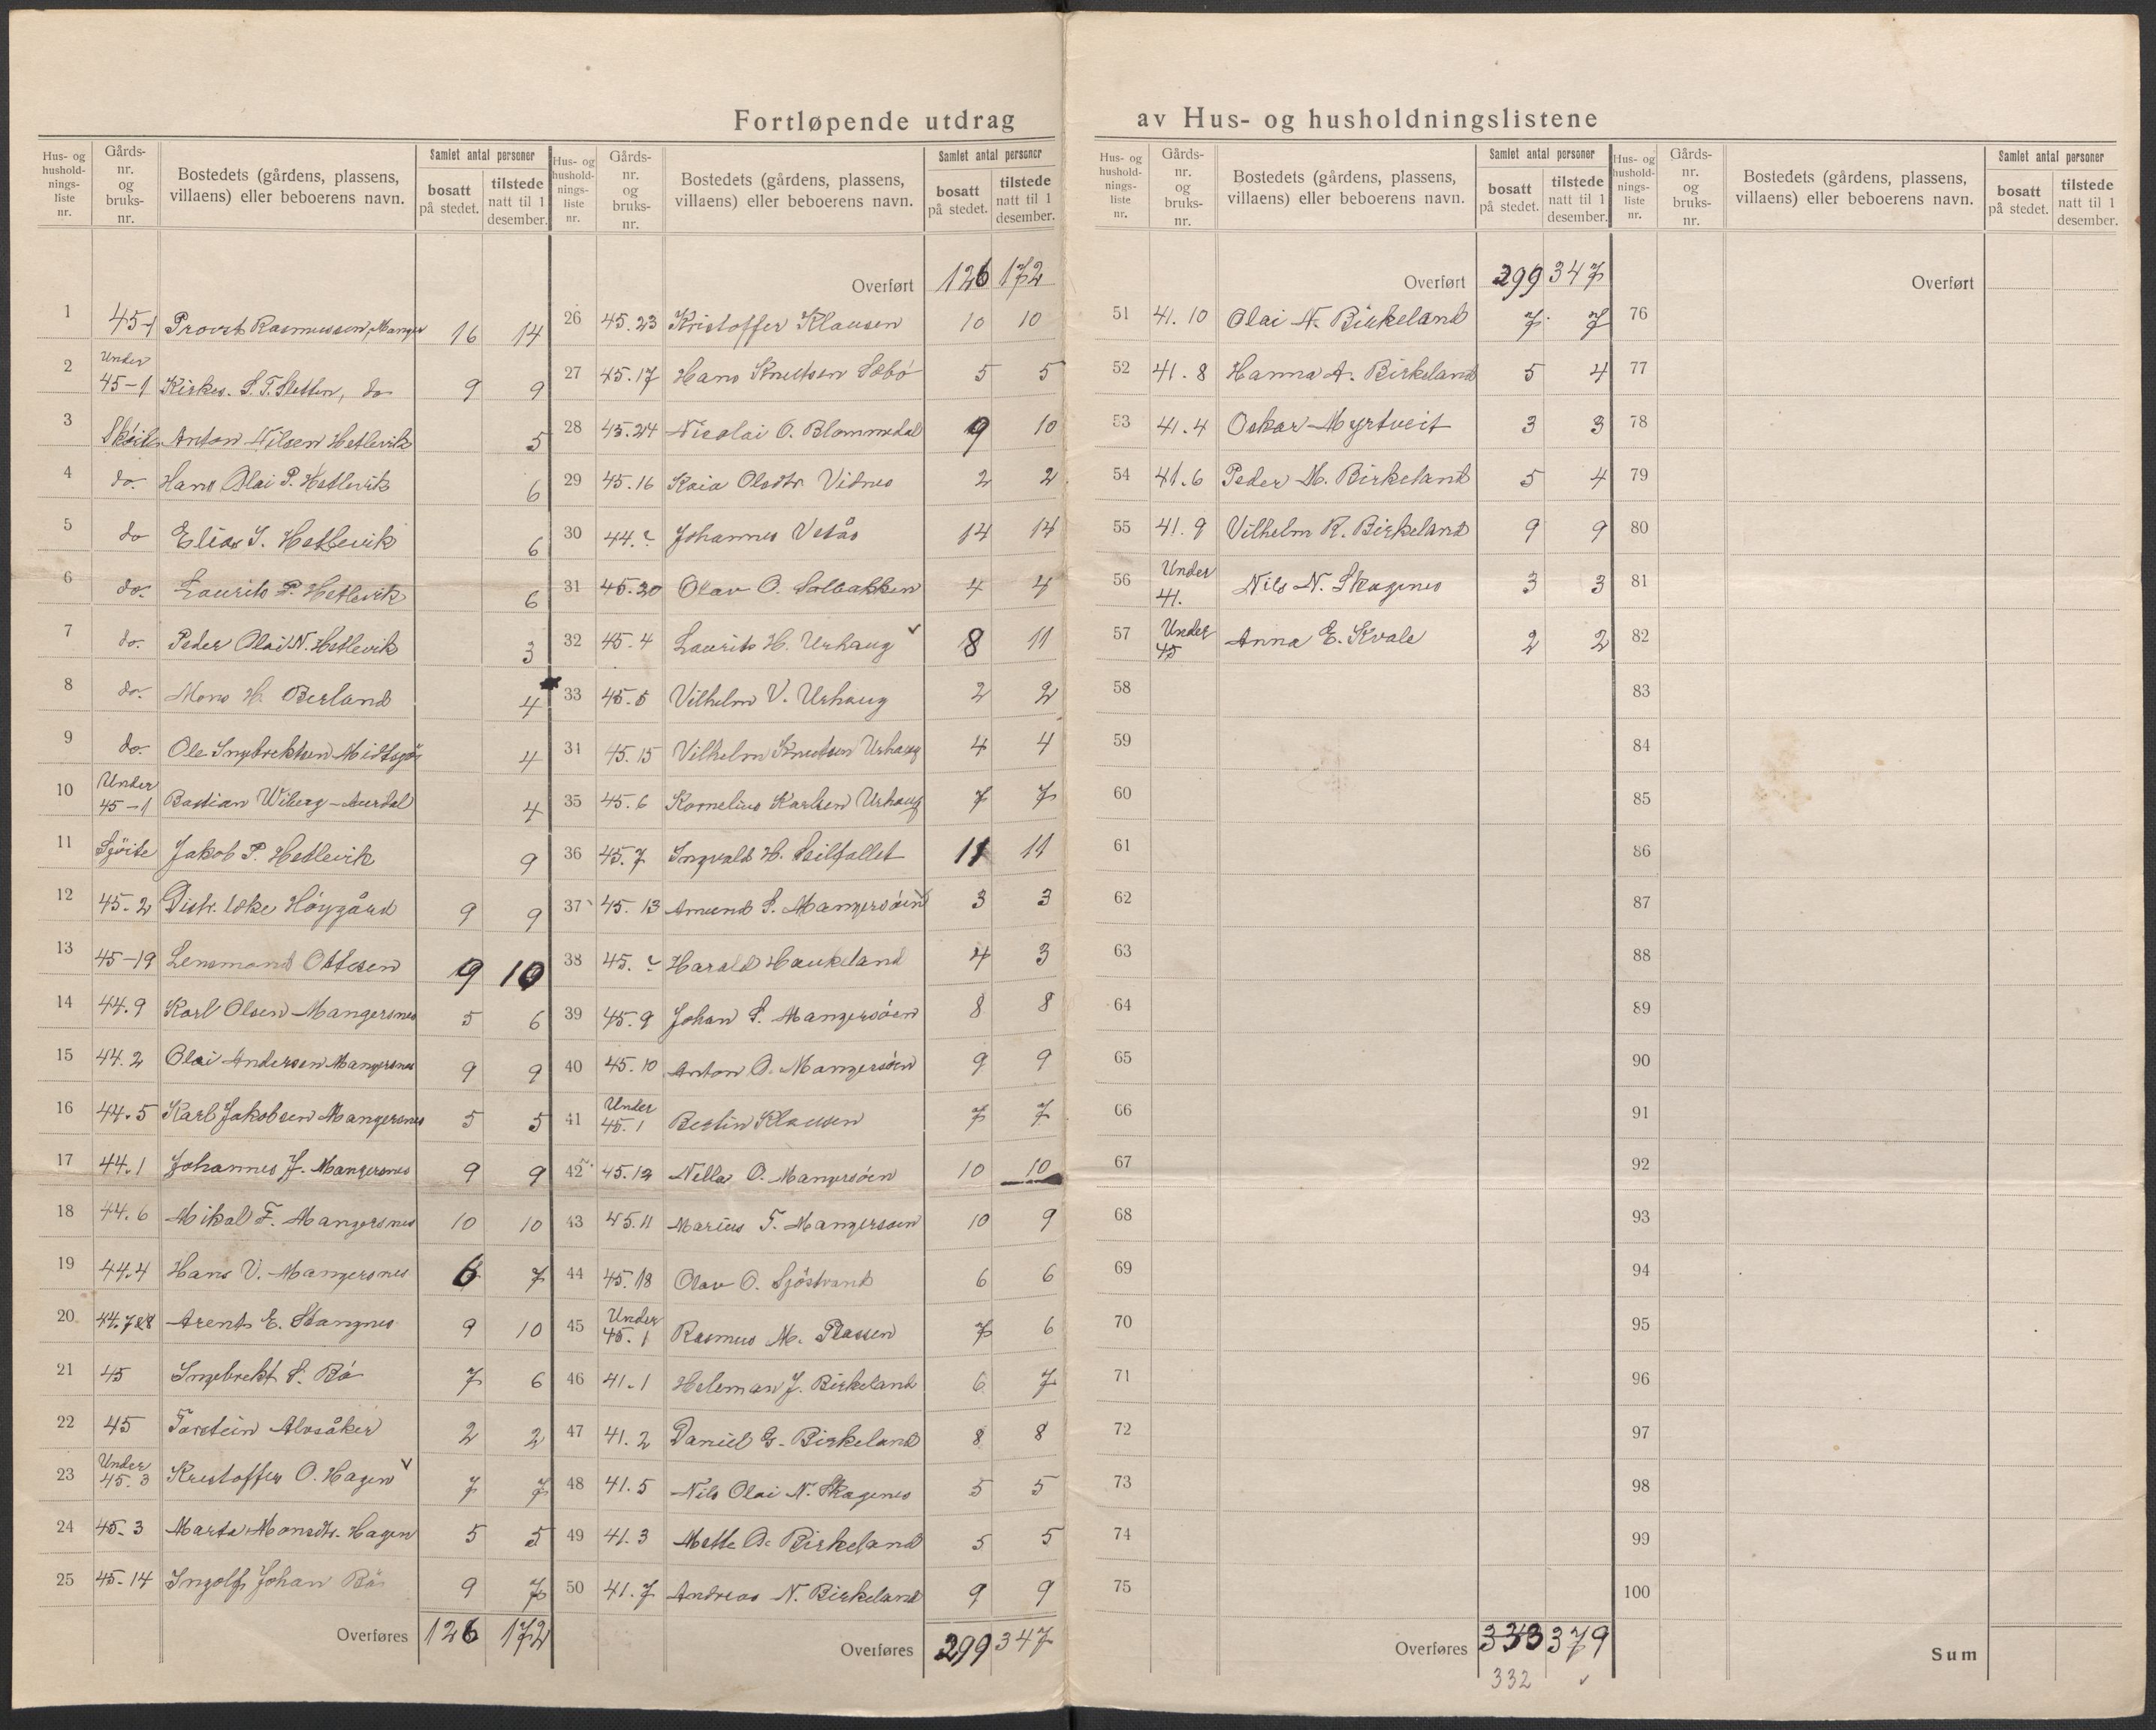 Fortløpende utdrag av Hus- og husholdningslistene
Hus- og husholdnings-liste nr. | Gårds-nr. og bruks-nr. | Bostedets (gårdens, plassens, villaens) eller beboerens navn. | Samlet antal personer | bosatt på stedet. | tilstede natt til 1 desember.
1 45-1 Provst Rasmussen, Manger 16 14
2 Under 45-1 Kirkes. S. T. Sletten, do 9 9
3 Skøite Anton Nilsen Hetlevik 5
4 do. Hans Olai P. Hetlevik 6
5 do Elias S. Hetlevik 6
6 do. Laurits P. Hetlevik 6
7 do. Peder Olai N. Hetlevik 3
8 do. Mons H. Berland 4
9 do. Ole Ingebrektsen Midtsgår 4
10 Under 45-1 Bastian Wiberg-Aurdal 4
11 Sjöite Jakob P. Hetlevik 9
12 45-2 Distr. læke Höygård 9 9
13 45-19 Lensmand Ottesen 9 10
14 44.9 Karl Olsen Mangersnes 5 6
15 44.2 Olai Andersen Mangersnes 9 9
16 44.5 Karl Jakobsen Mangersnes 5 5
17 44.1 Johannes J. Mangersnes 9 9
18 44.6 Mikal F. Mangersnes 10 10
19 44.4 Hans V. Mangersnes 6 7
20 44.7&8 Arent E. Stangnes 9 10
21 45 Ingebrekt S. Bö 7 6
22 45 Torstein Alvsåker 2 2
23 Under 45.3 Kristoffer O. Hagen 7 7
24 45.3 Marta Monsdtr. Hagen 5 5
25 45-14 Ingolf Johan Bö 9 7
Overføres 126 172
Hus- og husholdnings-liste nr. | Gårds-nr. og bruks-nr. | Bostedets (gårdens, plassens, villaens) eller beboerens navn. | Samlet antal personer | bosatt på stedet. | tilstede natt til 1 desember.
Overført 126 172
26 45.23 Kristoffer Klausen 10 10
27 45.17 Hans Knutsen Sæbö 5 5
28 45.24 Nicolai O. Blommedal 9 10
29 45.16 Kaia Olsdtr. Vidnes 2 2
30 44.? Johannes Vetås 14 14
31 45.20 Olav O. Solbakken 4 4
32 45.4 Laurits H. Urhaug 8 11
33 45.5 Vilhelm V. Urhaug 2 2
34 45.15 Vilhelm Knutsen Urhaug 4 4
35 45.6 Kornelius Karlsen Urhaug 7 7
36 45.7 Ingvald H. Seilfallet 11 11
37 45.13 Amund S. Mangersöen 3 3
38 45.? Harald Haukeland 4 3
39 45.9 Johan S. Mangersöen 8 8
40 45.10 Anton O. Mangersöen 9 9
41 Under 45.1 Bertin Klausen 7 7
42 45.12 Nella O. Mangersöen 10 10
43 45.11 Marius T. Mangersöen 10 9
44 45.18 Olav O. Sjöstrand 6 6
45 Under 45.1 Rasmus M. Plassen 7 6
46 41.1 Heleman J. Birkeland 6 7
47 41.2 Daniel G. Birkeland 8 8
48 41.5 Nils Olai N. Skagenes 5 5
49 41.3 Mette A. Birkeland 5 5
50 41.7 Andreas N. Birkeland 9 9
Overføres 299 347
Hus- og husholdnings-liste nr. | Gårds-nr. og bruks-nr. | Bostedets (gårdens, plassens, villaens) eller beboerens navn. | Samlet antal personer | bosatt på stedet. | tilstede natt til 1 desember.
Overført 299 347
51 41.10 Olai N. Birkeland 7 7
52 41.8 Hanna A. Birkeland 5 4
53 41.4 Oskar Myrtveit 3 3
54 41.6 Peder M. Birkeland 5 4
55 41.9 Vilhelm R. Birkeland 9 9
56 Under 41. Nils N. Skagenes 3 3
57 Under 45 Anna E. Kvale 2 2
58
59
60
61
62
63
64
65
66
67
68
69
70
71
72
73
74
75
Overføres 333 379
332 ✓
Hus- og husholdnings-liste nr. | Gårds-nr. og bruks-nr. | Bostedets (gårdens, plassens, villaens) eller beboerens navn. | Samlet antal personer | bosatt på stedet. | tilstede natt til 1 desember.
Overført
76
77
78
79
80
81
82
83
84
85
86
87
88
89
90
91
92
93
94
95
96
97
98
99
100
Sum